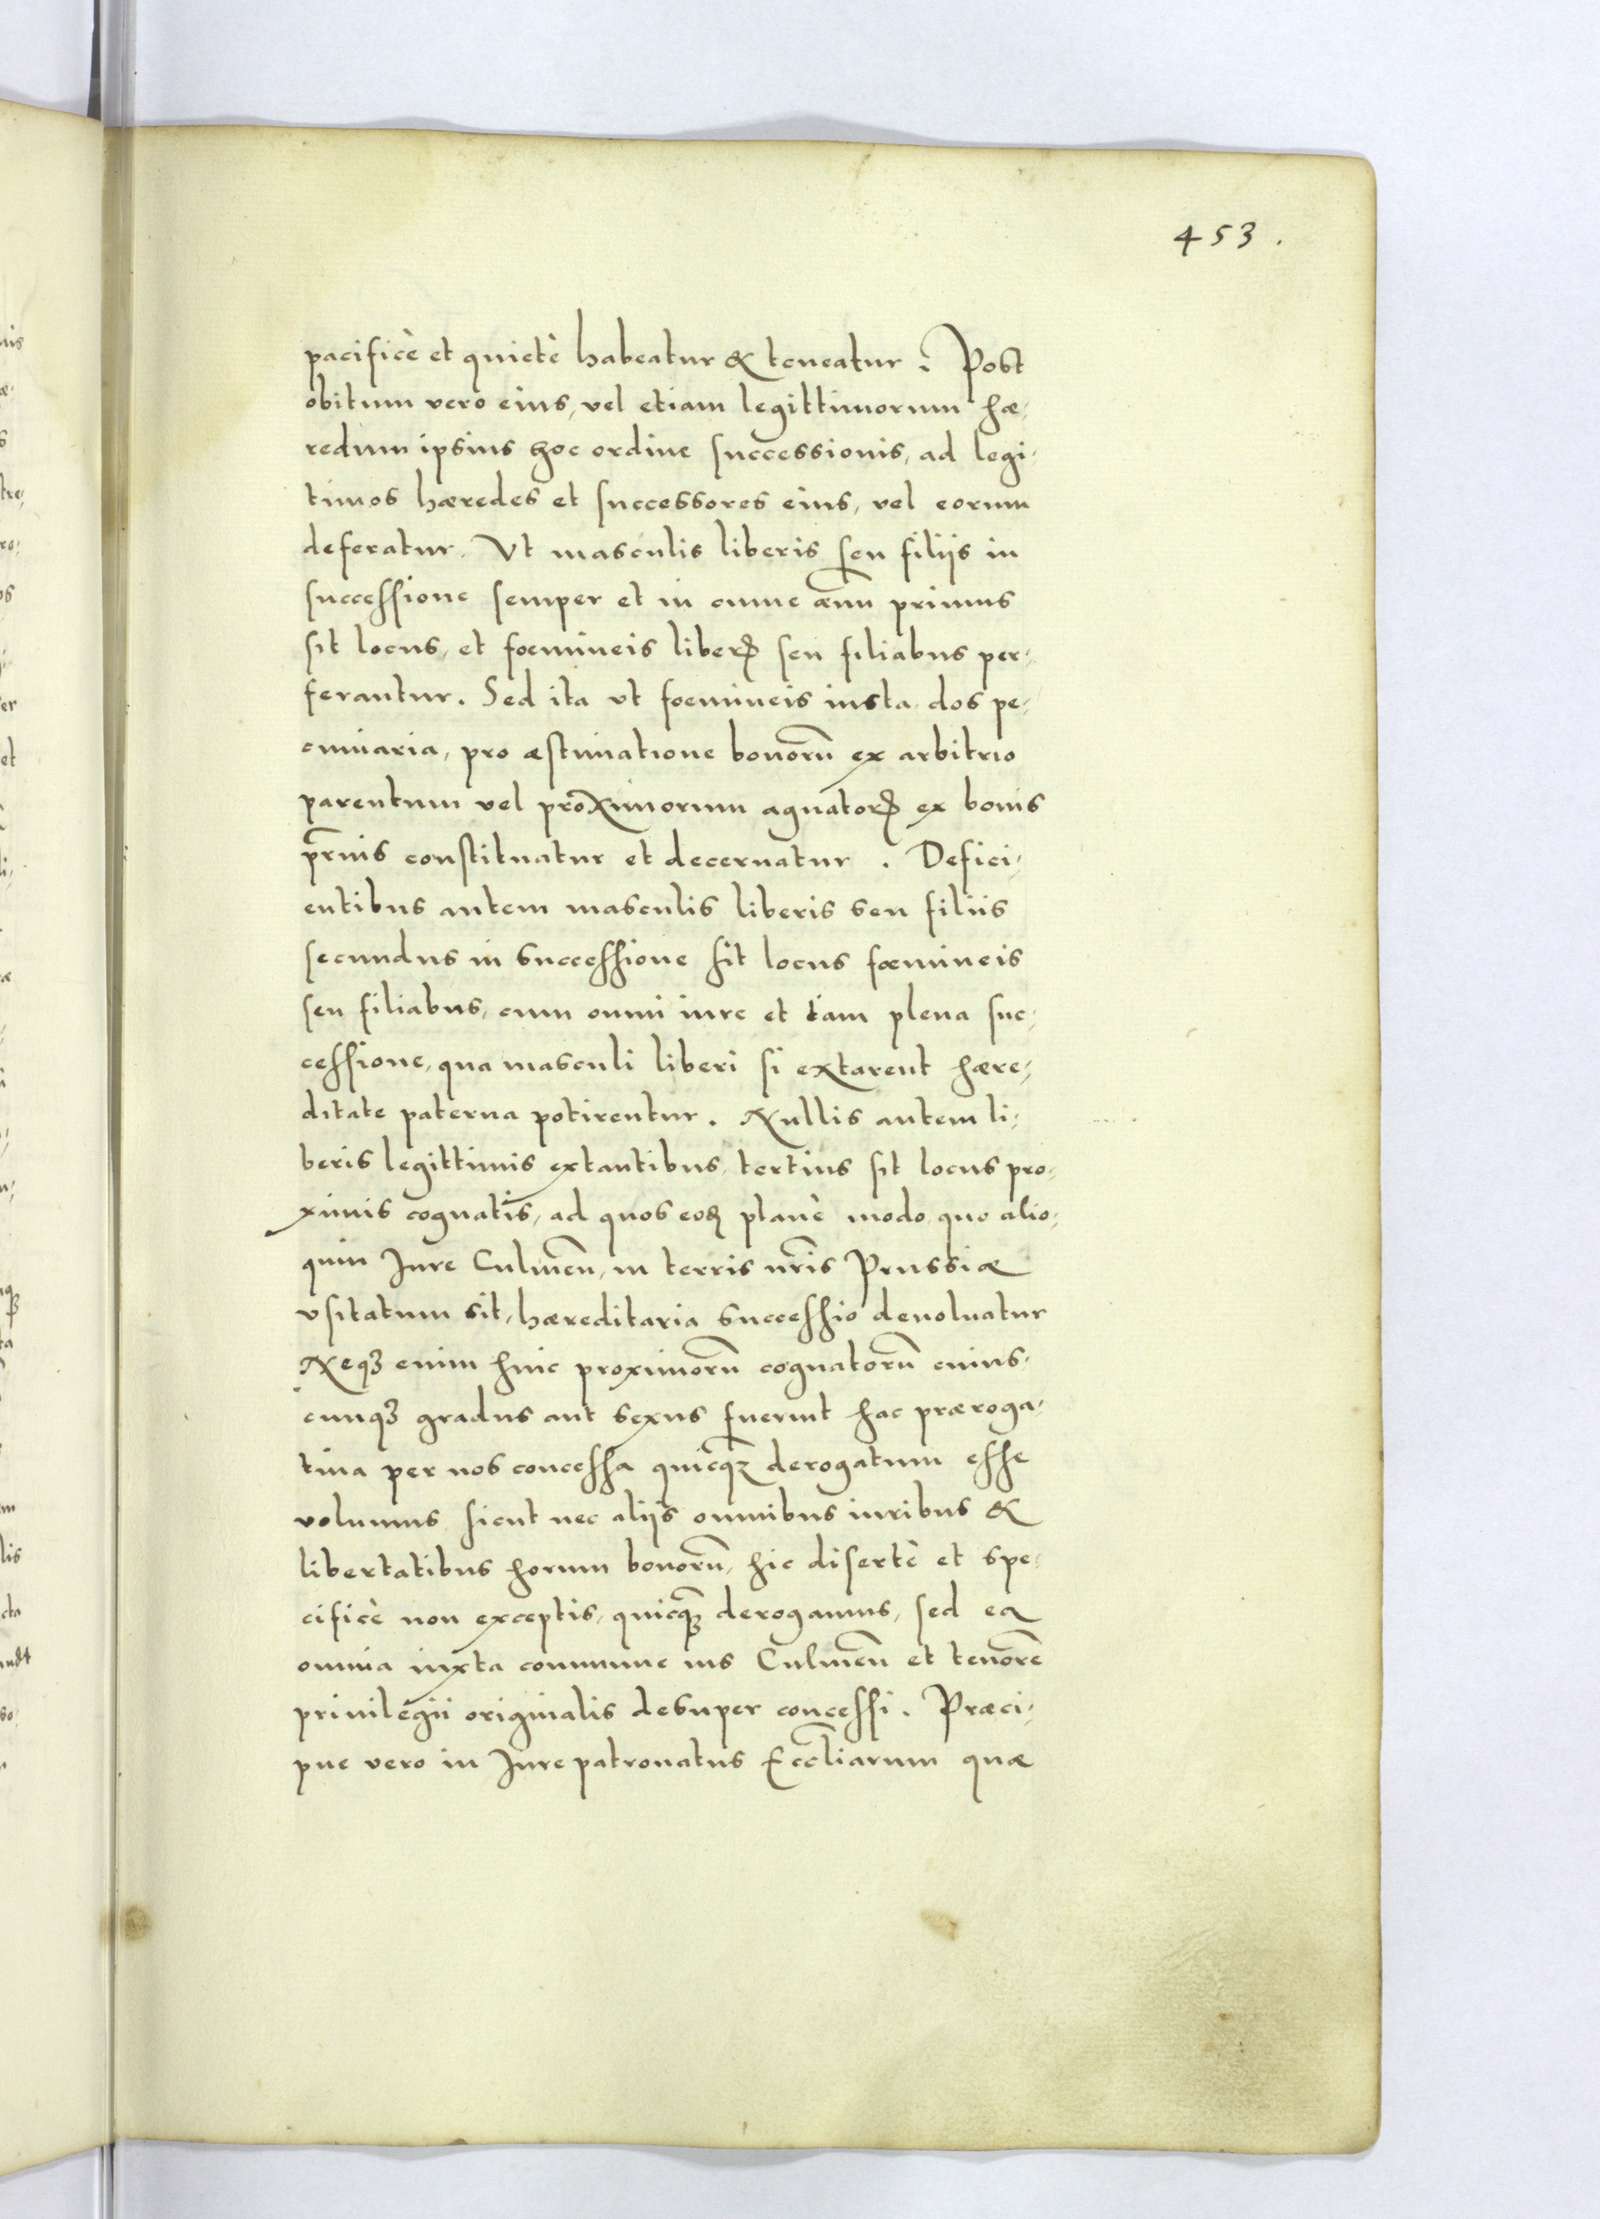 453.
pacificè et quietè habeatur & teneatur. Post
obitum vero eius, vel etiam legittimorum hæ-
redum ipsius hoc ordine successionis, ad legi-
timos hæredes et successores eius, vel eorum
deferatur. Vt masculis liberis seu filijs in
successione semper et in omne æuũ primus
sit locus, et foemineis liberꝭ seu filiabus per-
ferantur. Sed ita vt foemineis iusta dos pe-
cuniaria, pro æstimatione bonorũ ex arbitrio
parentum vel proximorum agnatorꝝ ex bonis
pr̃nis constituatur et decernatur. Defici-
entibus autem masculis liberis seu filiis
secundus in successione sit locus fœmineis
seu filiabus, cum omni iure et tam plena suc-
cessione, qua masculi liberi si extarent hære-
ditate paterna potirentur. Nullis autem li-
beris legittimis extantibus, tertius sit locus pro-
ximis cognatis, ad quos eoꝝ planè modo quo alio-
quin Jure Culmeñ, in terris nr̃is Prussiæ
vsitatum sit, hæreditaria successio deuoluatur
Neqꝫ enim huic proximorũ cognatorũ cuius-
cunqꝫ gradus aut sexus fuerint hac præroga-
tiua per nos concessa quicqꝫ derogatum esse
volumus sicut nec aliis omnibus iuribus &
libertatibus horum bonorũ, hic disertè et spe-
cificè non exceptis, quicq̃ derogamus, sed ea
omnia iuxta commune ius Culmeñ et tenorẽ
priuilegii originalis desuper concessi. Præci-
pue vero in Jure patronatus Eccl̃iarum quæ